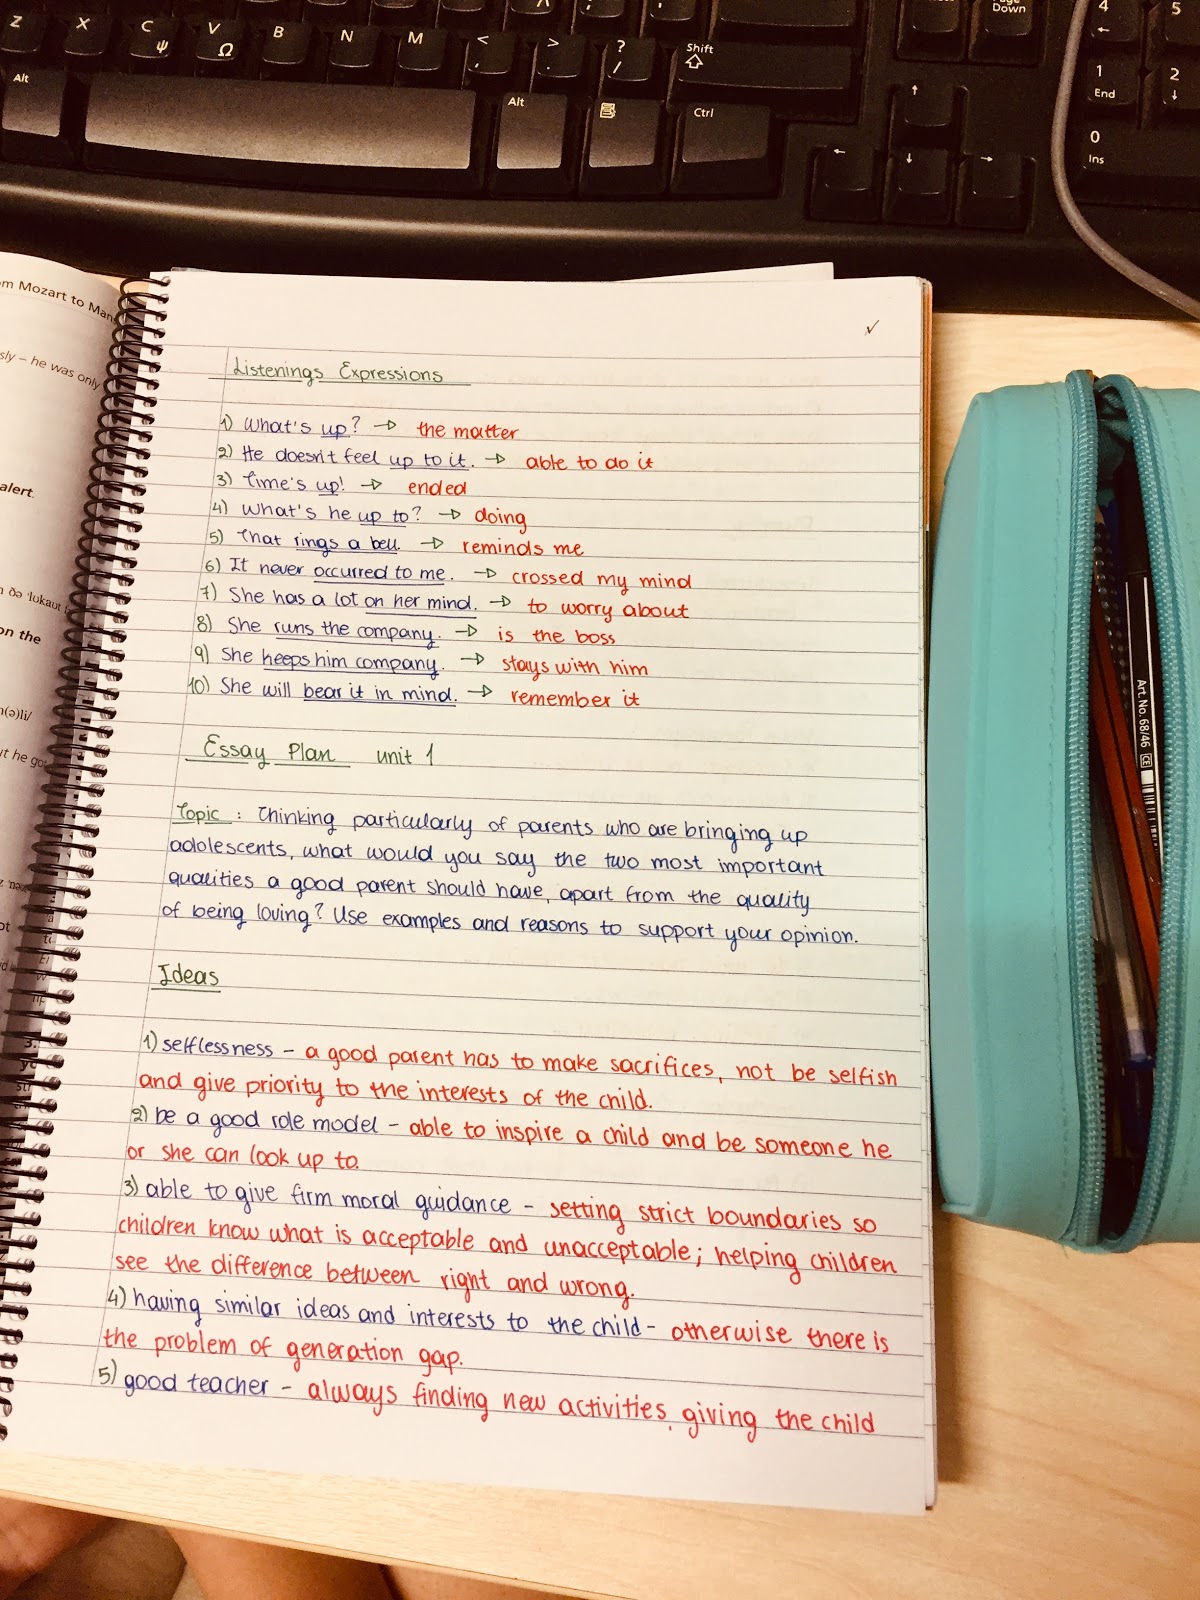 Z X C V B N M < > ? Shift
ψ Ω , . / Page Down
Alt Alt Ctrl
4 5
1 End 2
0 Ins
om Mozart to Man
sly – he was only
alert.
on the
✓
Listenings Expressions
1) What's up? → the matter
2) He doesn't feel up to it. → able to do it
3) Time's up! → ended
4) What's he up to? → doing
5) That rings a bell. → reminds me
6) It never occurred to me. → crossed my mind
7) She has a lot on her mind. → to worry about
8) She runs the company. → is the boss
9) She keeps him company. → stays with him
10) She will bear it in mind. → remember it
Essay Plan unit 1
Topic : Thinking particularly of parents who are bringing up
adolescents, what would you say the two most important
qualities a good parent should have, apart from the quality
of being loving? Use examples and reasons to support your opinion.
Ideas
1) selflessness – a good parent has to make sacrifices, not be selfish
and give priority to the interests of the child.
2) be a good role model – able to inspire a child and be someone he
or she can look up to.
3) able to give firm moral guidance – setting strict boundaries so
children know what is acceptable and unacceptable; helping children
see the difference between right and wrong.
4) having similar ideas and interests to the child – otherwise there is
the problem of generation gap.
5) good teacher – always finding new activities, giving the child
Art.No. 68/46 CE